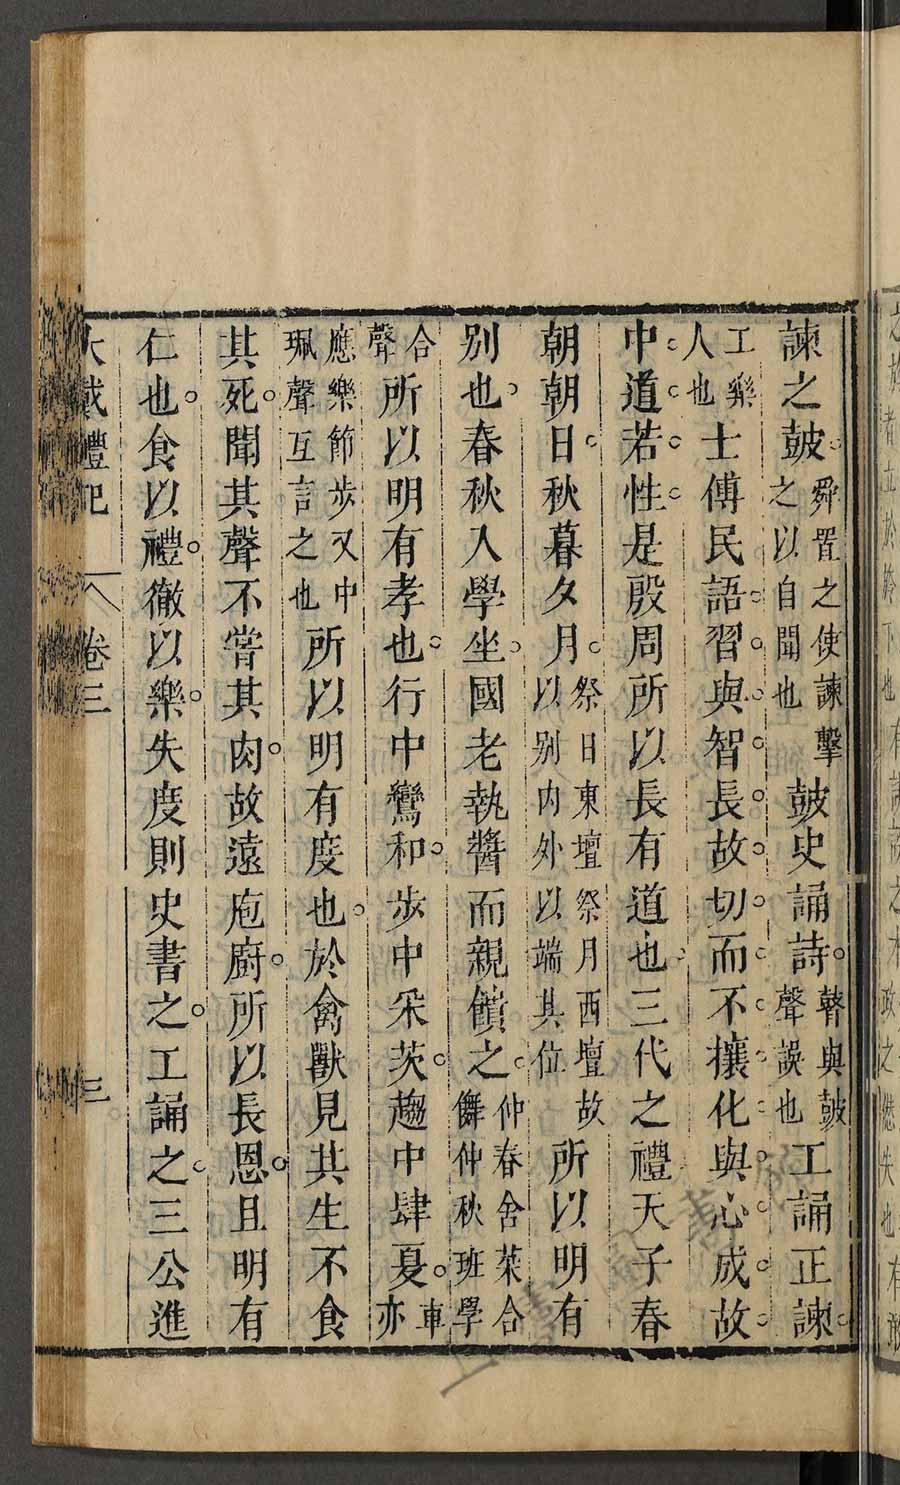 諫之鼓舜置之使諫擊之以自聞也鼓史誦詩瞽與鼓聲誤也工誦正諫
工樂人也士傅民語習與智長故切而不攘化與心成故
中道若性是殷周所以長有道也三代之禮天子春
朝朝日秋暮夕月祭日東壇祭月西壇故以别内外以端其位所以明有
别也春秋入學坐國老執醬而親饋之仲春舍菜合儛仲秋班學
合聲所以明有孝也行中鸞和步中采茨趨中肆夏車亦
應樂節步又中珮聲互言之也所以明有度也於禽獸見其生不食
其死聞其聲不嘗其肉故遠庖廚所以長恩且明有
仁也食以禮徹以樂失度則史書之工誦之三公進
大戴禮記 卷三 三